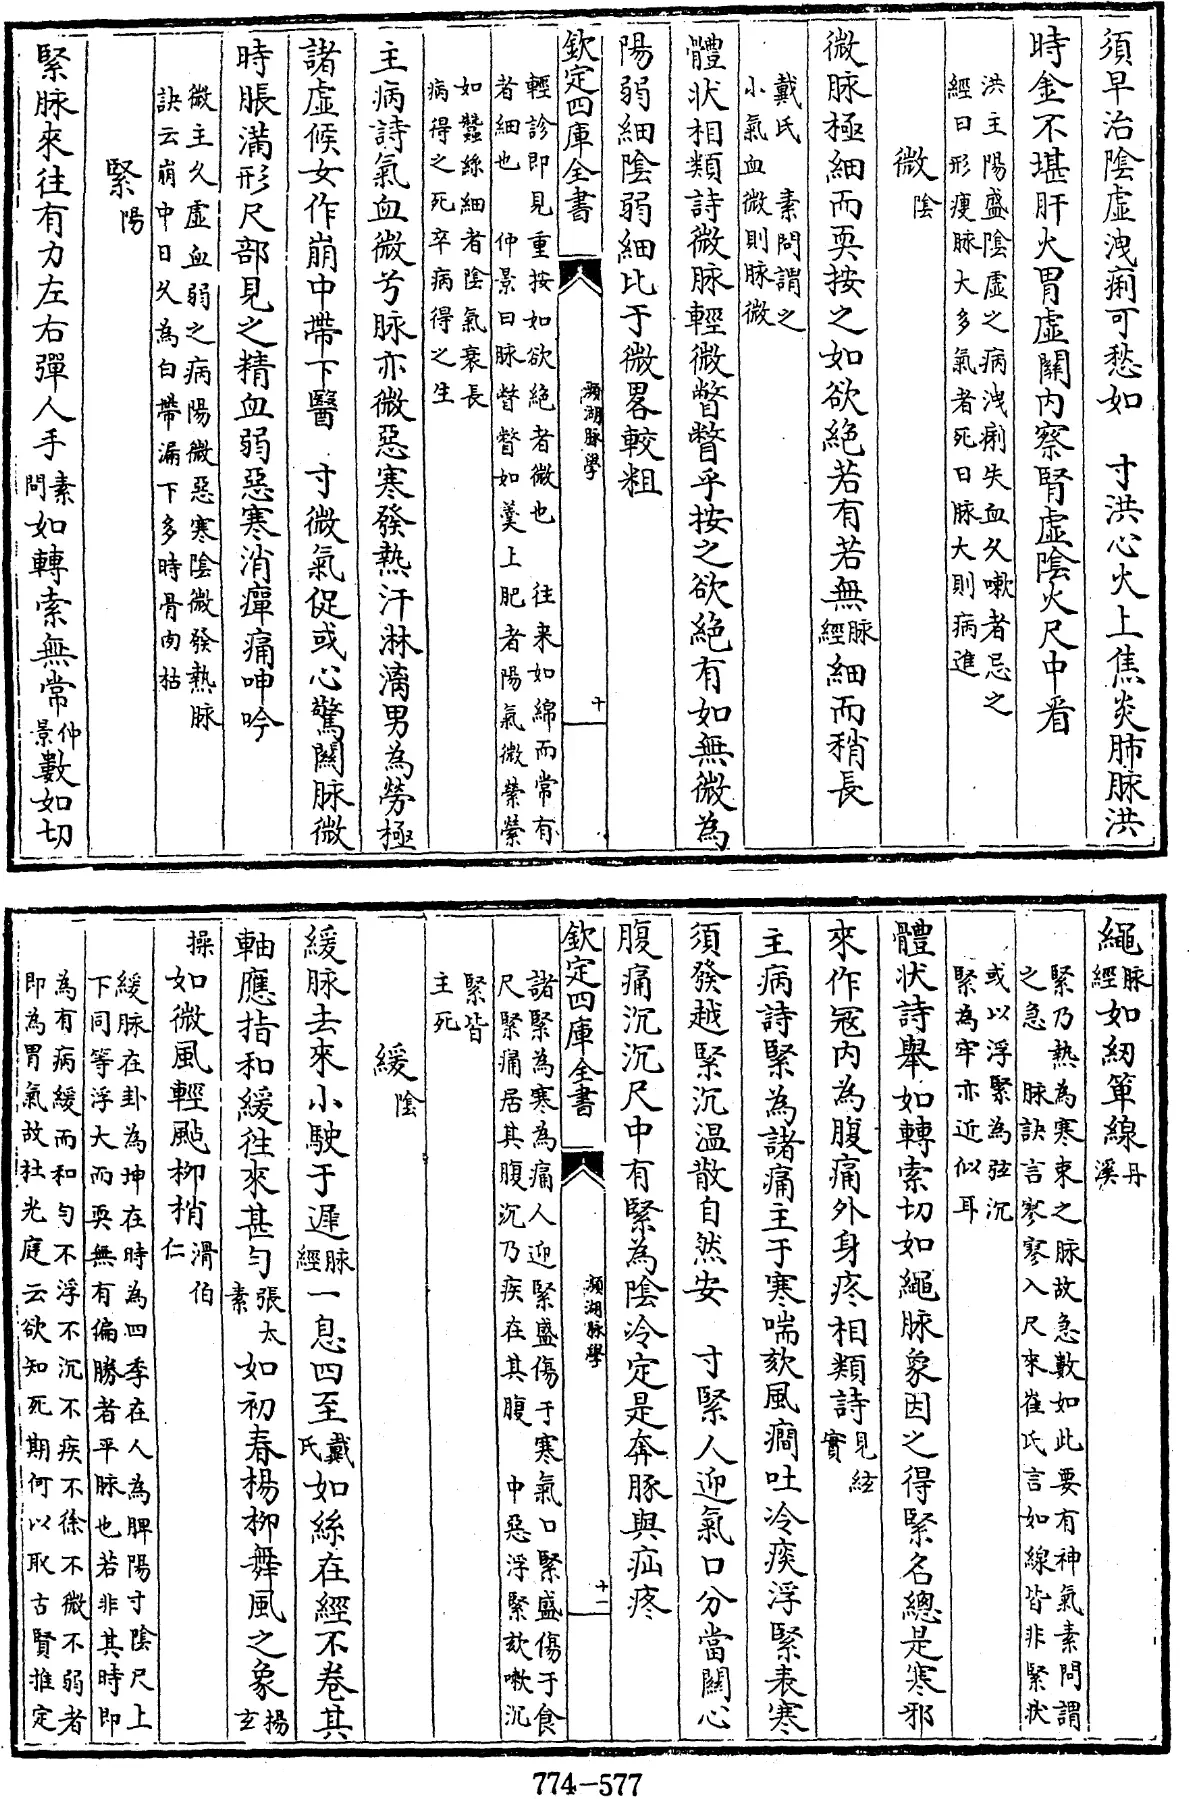 須早治陰虛洩痢可愁如　寸洪心火上焦炎肺脉洪
時金不堪肝火胃虛關内察腎虛陰火尺中看
洪主陽盛陰虛之病洩痢失血久嗽者忌之
經曰形瘦脉大多氣者死曰脉大則病進
微陰
微脉極細而耎按之如欲絶若有若無脉經細而稍長
戴氏　素問謂之
小氣血微則脉微
體狀相類詩微脉輕微瞥瞥乎按之欲絶有如無微為
陽弱細陰弱細比于微畧較粗
欽定四庫全書
瀕湖脉學
十
輕診即見重按如欲絶者微也　往来如綿而常有
者細也　仲景曰脉瞥瞥如羮上肥者陽氣微縈縈
如蠶絲細者陰氣衰長
病得之死卒病得之生
主病詩氣血微兮脉亦微惡寒發熱汗淋漓男為勞極
諸虛候女作崩中帶下醫　寸微氣促或心驚關脉微
時脹滿形尺部見之精血弱惡寒消癉痛呻吟
微主久虛血弱之病陽微惡寒陰微發熱脉
訣云崩中日久為白帶漏下多時骨肉枯
緊陽
緊脉來往有力左右彈人手素問如轉索無常仲景數如切
繩脉經如紉箄線丹溪
緊乃熱為寒束之脉故急數如此要有神氣素問謂
之急　脉訣言寥寥入尺來崔氏言如線皆非緊狀
或以浮緊為弦沉
緊為牢亦近似耳
體狀詩舉如轉索切如繩脉象因之得緊名總是寒邪
來作冦内為腹痛外身疼相類詩見絃實
主病詩緊為諸痛主于寒喘欬風癎吐冷痰浮緊表寒
須發越緊沉温散自然安　寸緊人迎氣口分當關心
腹痛沉沉尺中有緊為陰冷定是奔豚與疝疼
欽定四庫全書
瀕湖脉學
十一
諸緊為寒為痛人迎緊盛傷于寒氣口緊盛傷于食
尺緊痛居其腹沉乃疾在其腹　中惡浮緊欬嗽沉
緊皆
主死
緩陰
緩脉去來小駛于遲脉經一息四至戴氏如絲在經不卷其
軸應指和緩往來甚匀張太素如初春楊柳舞風之象楊玄
操如微風輕颭柳梢滑伯仁
緩脉在卦為坤在時為四季在人為脾陽寸陰尺上
下同等浮大而耎無有偏勝者平脉也若非其時即
為有病緩而和匀不浮不沉不疾不徐不微不弱者
即為胃氣故杜光庭云欲知死期何以取古賢推定
774—577